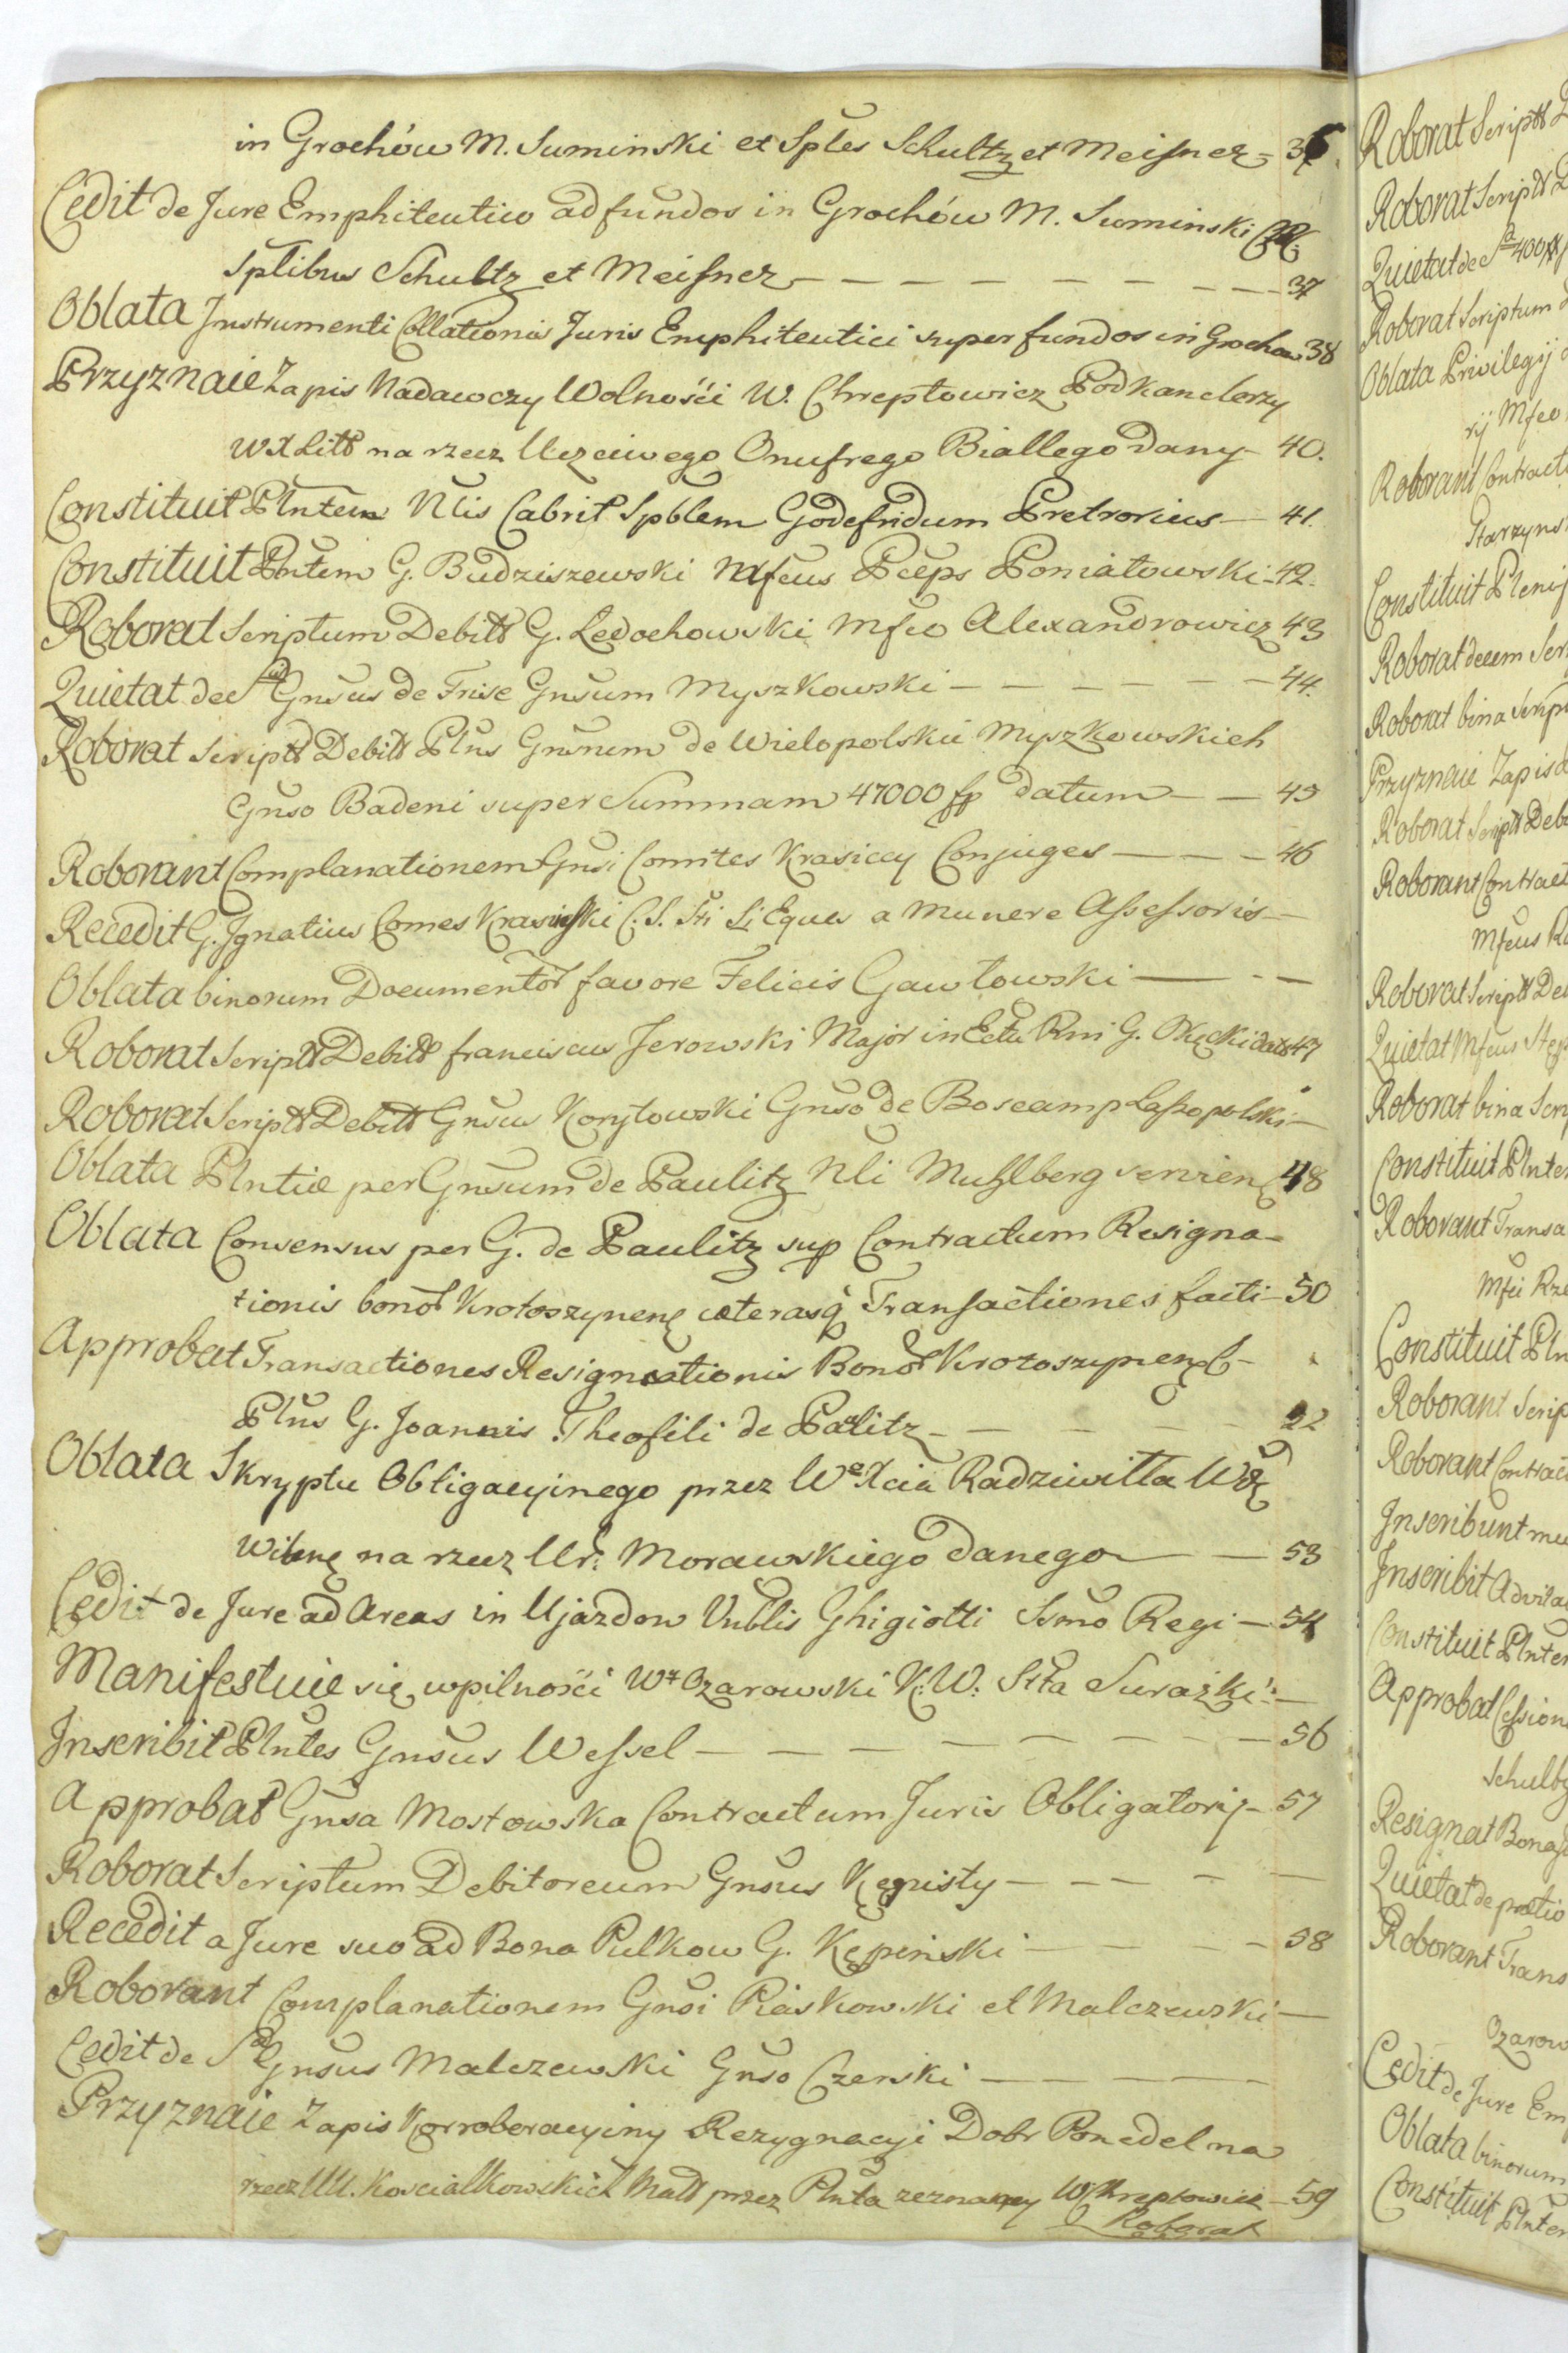 in Grochów M. Suminski et Sptes Schultz et Meissner – 36
Cedit de Jure Emphiteutico ad fundos in Grochów M. Suminski
Sptibus Schultz et Meissner – – – – – – – 37
Oblata Instrumenti Collationis Juris Emphiteutici super fundos in Grochow 38
Przyznaie Zapis Nadawczy Wolnośći W. Chreptowicz Podkanclerzy
WX Litt na rzecz Uczciwego Onufrego Biallego Dany – 40.
Constituit Plntem Nlis Cabrit Spblem Godefridum Pretrorius – 41.
Constituit Plntem G. Budziszewski Mfcus Pceps Poniatowski – 42.
Roborat Scriptum Debitt G. Ledochowski Mfco Alexandrowicz 43
Quietat de Sa Gnsus de Frise Gnsum Myszkowski – – – – – – 44.
Roborat Script Debitt Plus Gnsnem de Wielopolskie Myszkowskich
Gnso Badeni super Summam 47000 fp datum – – 45
Roborant Complanationem Gnsi Comites Krasiccy Conjuges – – – 46
Recedit G. Ignatius Comes Krasiński C. S. Sti Li Eques a Munere Assessoris –
Oblata binorum Documentor favore Felicis Gawłowski – – –
Roborat Script Debitt franciscus Jerowski Major in Ectu Rni G. Okęcki dats 47
Roborat Script Debitt Gnsus Korytowski Gnso de Boscamp Lassopolski –
Oblata Plntiæ per Gnsum de Paulitz Nli Muhlberg servien 48
Oblata Consensus per G. de Paulitz sup Contractum Resigna-
tionis bonor Krotoszynen cæterasq Transactiones facti – 50
Approbat Transactiones Resignationis Bonor Krotoszynen C –
Plus G. Joannis Theofili de Palitz – – – – 52
Oblata Skryptu Obligacyinego przez We Xcia Radziwiłła Wdę
Wilenę na rzecz Ur: Morawskiego danego – – 53
Cedit de Jure ad Areas in Ujazdow Vnblis Ghigiotti Ssmo Regi – 54
Manifestuie się wpilnośći Wt Ozarowski K: W: Stta Surazki: –
Inscribit Plntes Gnsus Wessel – – – – – – – – 56
Approbat Gnsa Mostowska Contractum Juris Obligatorij – 57
Roborat Scriptum Debitoreum Gnsus Kępisty – – – – –
Recedit a Jure suo ad Bona Pulkow G. Kępiński – – – – 58
Roborant Complanationem Gnsi Piaskowski et Malczewski –
Cedit de Sa Gnsus Malczewski Gnso Czerski – – – – –
Przyznaie Zapis Korroboracyiny Rezygnacyi Dobr Ponedel na
rzecz UU. Kosciałkowskich Małż przez Plnta zeznany W. Chreptowicz – 59
Roborat
Roborat Script
Roborat Script
Quietat de Sa 400
Roborat Scriptum
Oblata Privilegij
rij Mfco
Roborant Contract
Starzyns
Constituit Plenip
Roborat decem Scr
Roborat bina Scrip
Przyznaie Zapis
Roborat Script Deb
Roborant Contract
Mfcus
Roborat Script De
Quietat Mfcus Step
Roborat bina Scrip
Constituit Plnten
Roborant Transa
Mfci Rze
Constituit Pln
Roborant Scrip
Roborant Contract
Inscribunt mu
Inscribit Advita
Constituit Plnten
Approbat Cession
Schultz
Resignat Bona
Quietat de prætio
Roborant Trans
Ozarow
Cedit de Jure Em
Oblata binorum
Constituit Plnten